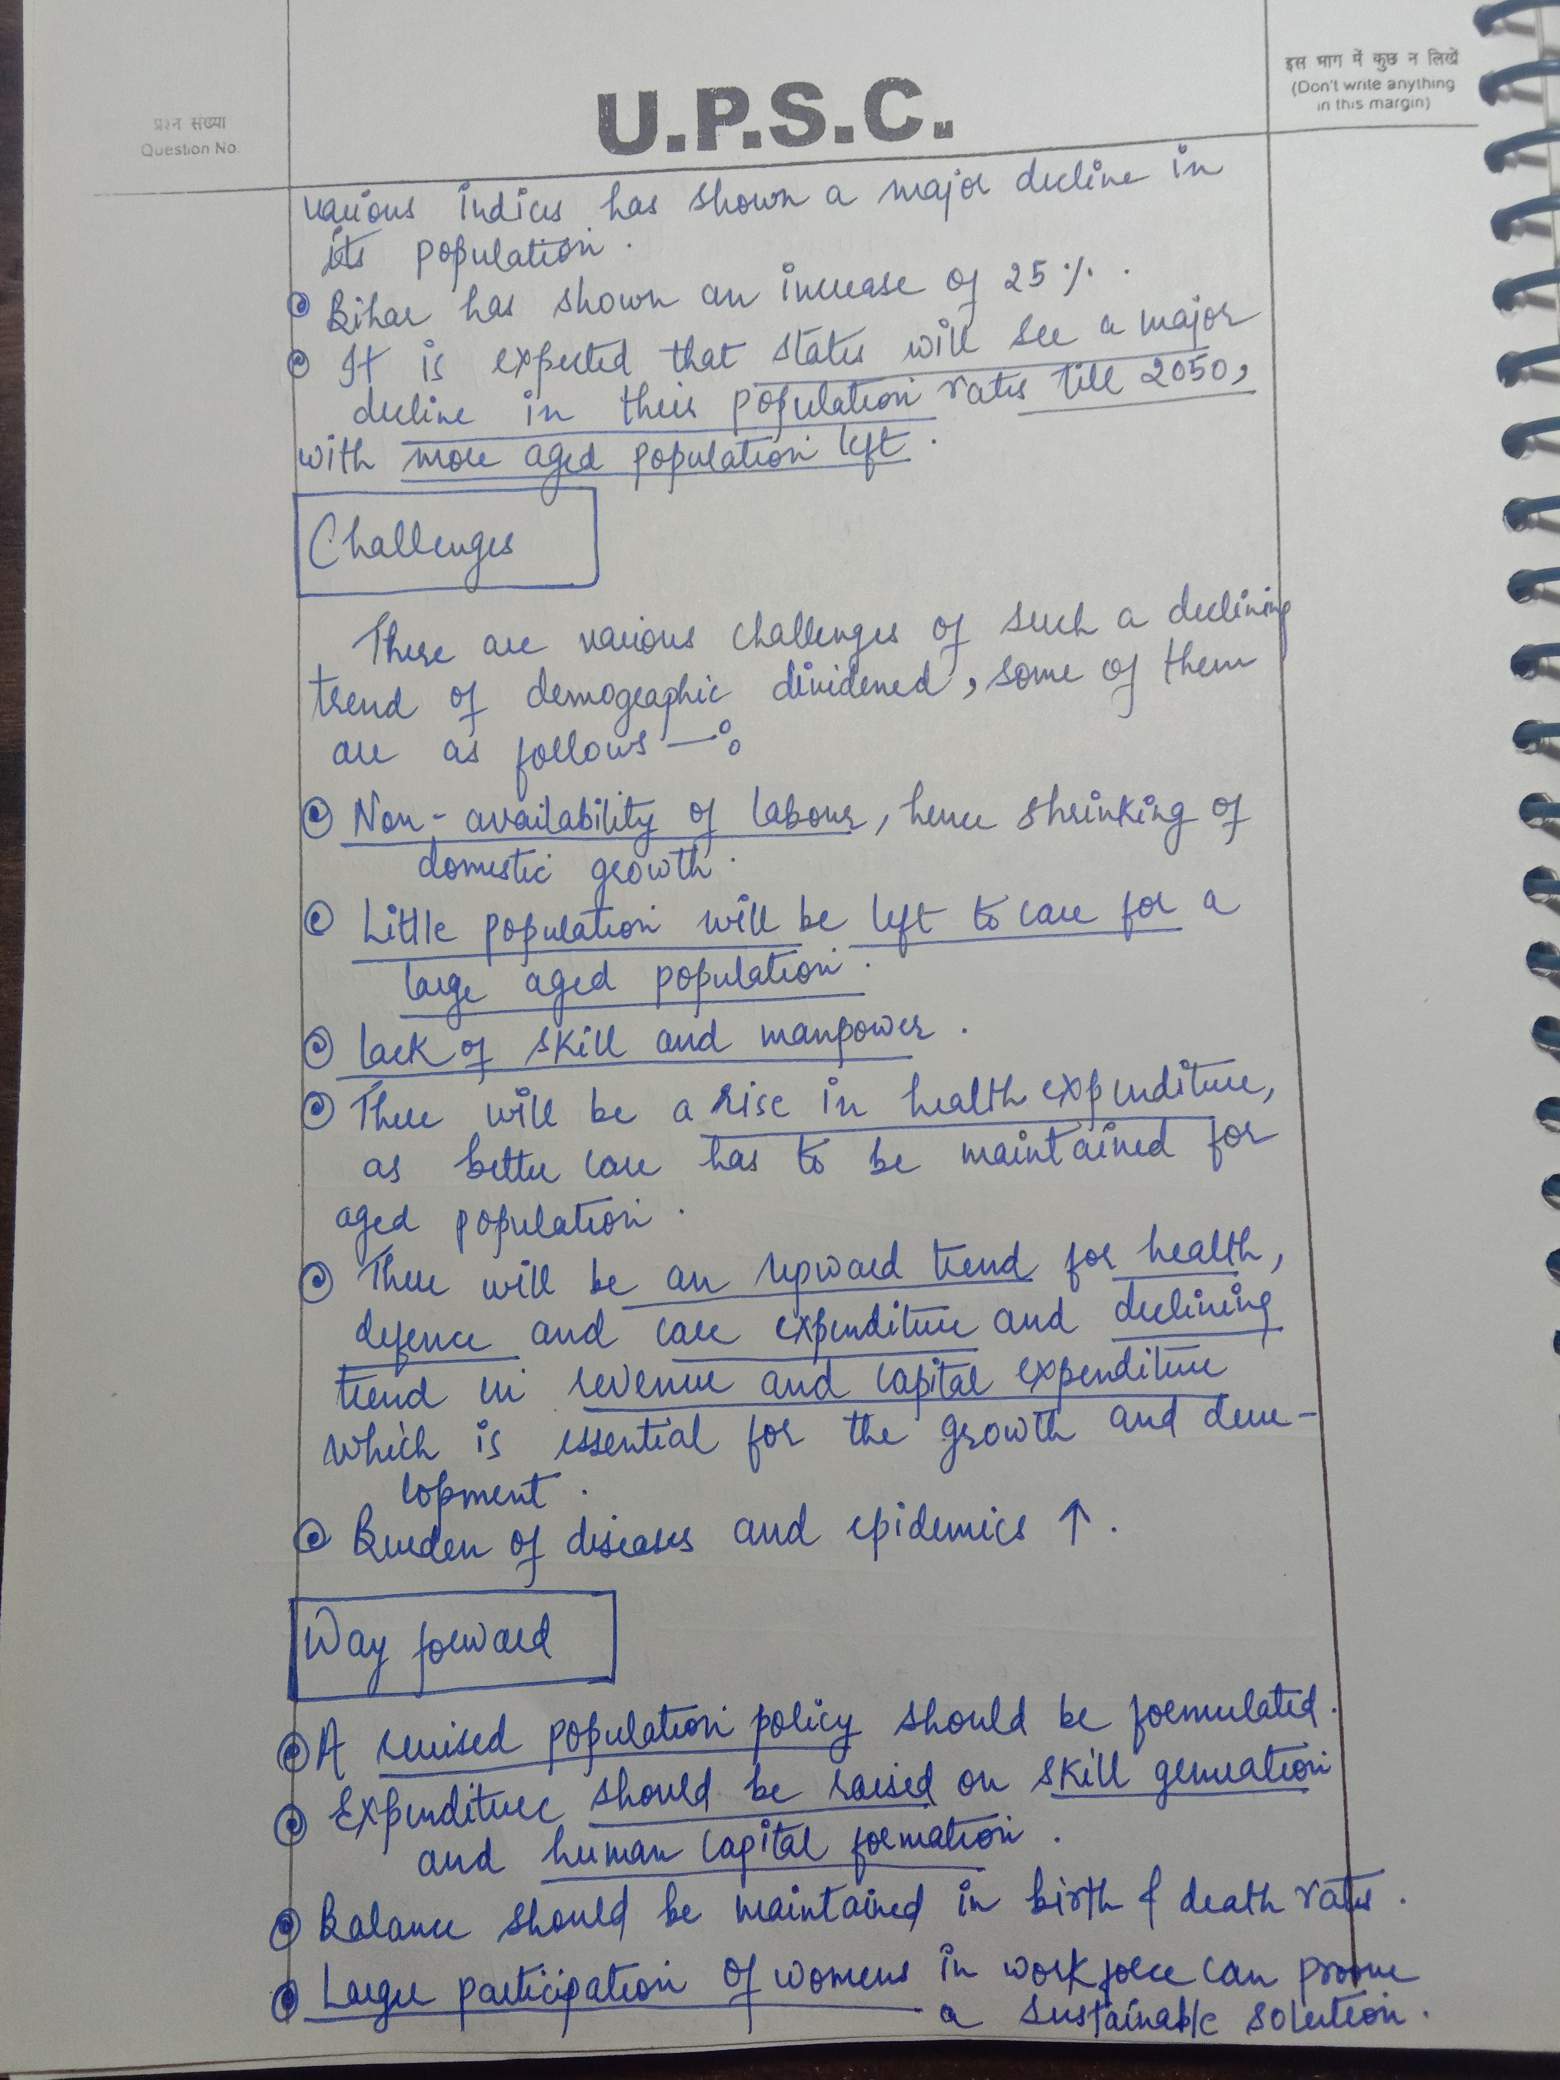 प्रश्न संख्या
Question No.
U.P.S.C.
इस भाग में कुछ न लिखें
(Don't write anything
in this margin)
various indices has shown a major decline in
its population.
Bihar has shown an increase of 25%.
It is expected that states will see a major
decline in their population rates till 2050,
with more aged population left.
Challenges
There are various challenges of such a declining
trend of demographic dividened, some of them
are as follows —:
Non-availability of labour, hence shrinking of
domestic growth.
Little population will be left to care for a
large aged population.
Lack of skill and manpower.
There will be a rise in health expenditure,
as better care has to be maintained for
aged population.
There will be an upward trend for health,
defence and care expenditure and declining
trend in revenue and capital expenditure
which is essential for the growth and deve-
lopment.
Burden of diseases and epidemics ↑.
Way forward
A revised population policy should be formulated.
Expenditure should be raised on skill generation
and human capital formation.
Balance should be maintained in birth & death rates.
Larger participation of womens in workforce can proove
a sustainable solution.